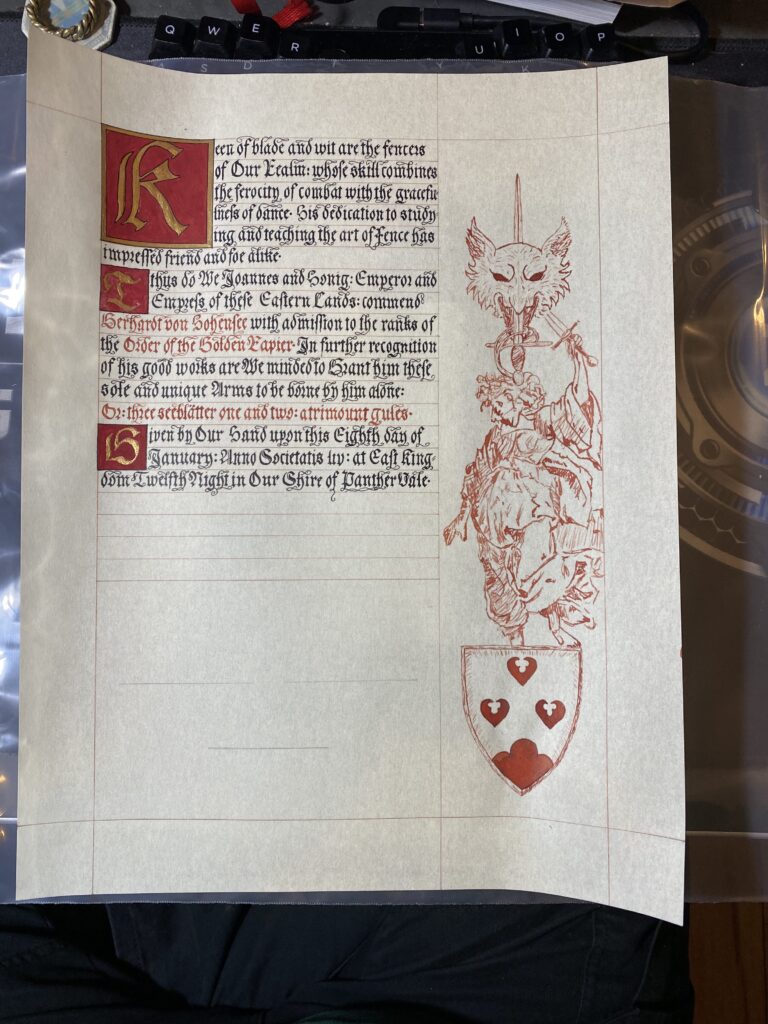 Q W E R U I O P
Keen of blade and wit are the fencers
of Our Realm: whose skill combines
the ferocity of combat with the gracefu
lness of dance· His dedication to study
ing and teaching the art of Fence has
impressed friend and foe alike·
Tthus do We Joannes and Honig: Emperor and
Empress of these Eastern Lands: commend
Gerhardt von Hohensee with admission to the ranks of
the Order of the Golden Rapier· In further recognition
of his good works are We minded to Grant him these
sole and unique Arms to be borne by him alone:
Or: three seeblätter one and two: a trimount gules·
Given by Our Hand upon this Eighth day of
January: Anno Societatis liv: at East King
dom Twelfth Night in Our Shire of Panther Vale·